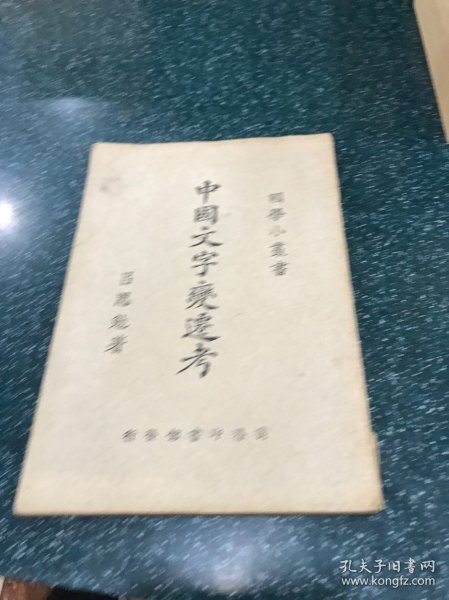 國學小叢書
中國文字變遷考
呂思勉著
商務印書館發行
孔夫子旧书网
www.kongfz.com